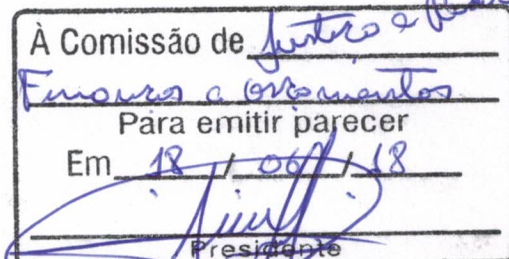 À Comissão de Justiça e
Finanças e orçamentos
Para emitir parecer
Em 18 / 06 / 18
Presidente